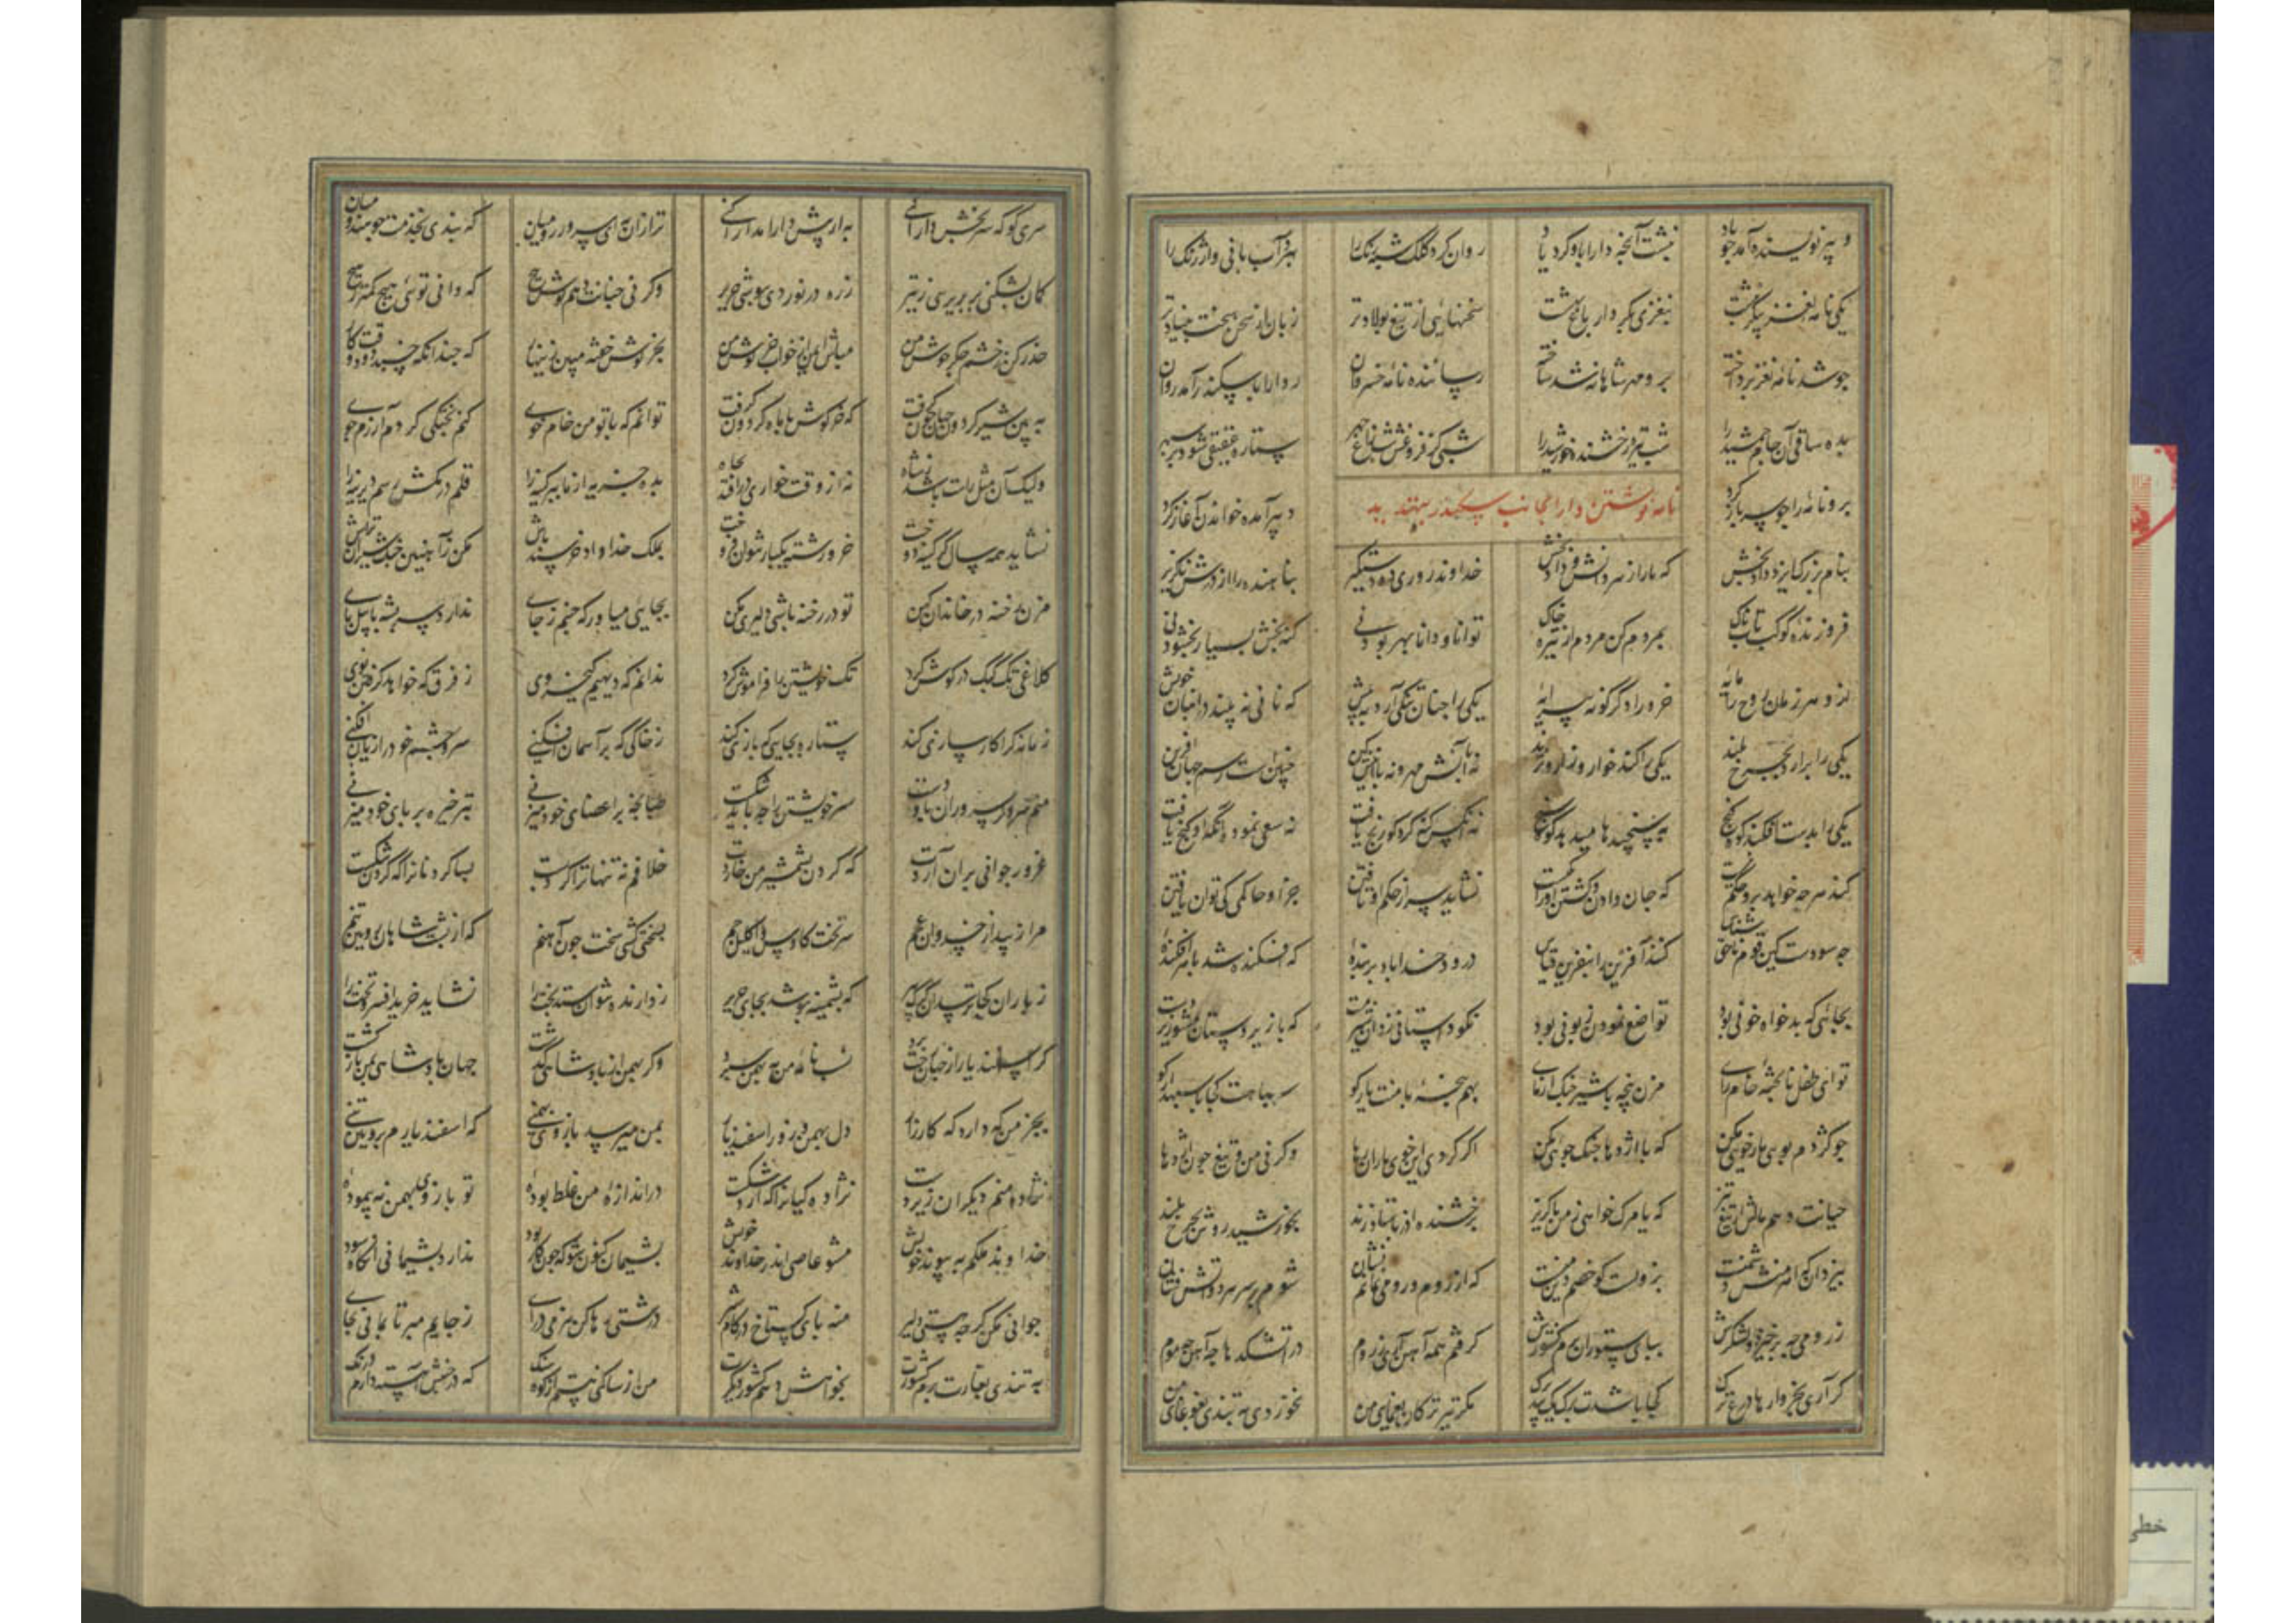 دبیر نویسنده آمد چو باد نبشت آنچه دارا بدو کرد یاد روان کرد کلک شبه رنگ را ببرد آب مانی و ارژنگ را
یکی نامه نغز پیکر نبشت بنغزی بکردار باغ بهشت سخنهایی از تیغ پولادتر زبان از سخن سخت بنیادتر
چو شد نامه نغز پرداخته برو مهر شاهانه شد ساخته رساننده نامه خسروان ز دارا باسکندر آمد روان
بده ساقی آن جام جمشید را شب تیره رخشنده خورشید را شبی کز فروغش ستاره سپهر
نامه نوشتن دارا بجانب سکندر بتهدید
برو نامه را چو سر باز کرد دبیر آمد خواندن آغاز کرد
بنام بزرگ ایزد دادبخش که ما را ز هر دانش او داد بخش خداوند روزی ده دستگیر پناهنده را از درش ناگزیر
فروزنده کوکب تابناک بمردم کن مردم از تیره خاک توانا و دانا بهر بودنی گنه بخش بسیار بخشودنی
ازو هر زمان روح را مایه خرد را دگر گونه پیرایه یکی را چنان تنگی آرد به پیش که نانی نه بیند در انبان خویش
یکی را برآرد بچرخ بلند یکی را کند خوار و زار و نژند نه آنش مهر و نه با اینش کین چنین است رسم جهان آفرین
یکی را بدست افکند کوه گنج به سنجیدها میدهد کوه رنج نه آنکس گنه کرد کو رنج یافت نه سعی نمود آنکه او گنج یافت
کند هرچه خواهد برو حکم نیست که جان دادن و کشتن او را یکیست نشاید سر از حکم او تافتن جز او حاکمی کی توان یافتن
چه سودست کین قوم ناحق شناس کنند آفرین را بنفرین قیاس درود خدا باد بر بنده که افکنده شد با هر افکنده
بجائی که بدخواه خونی بود تواضع نمودن زبونی بود نکو داستانی زد آن شیر مست که با زیردستان مشو زیردست
تو ای طفل ناپخته خام رای مزن پنجه با شیر جنگ آزمای بهم پنجه با منت یار کو سپاهت کجا و سپهدار کو
چو کژدم بوی مار خویی مکن که با اژدها جنگ جوئی مکن اگر کردی این خوی ماران رها وگرنی من و تیغ چون اژدها
چنانت دهم مالش از تیغ تیز که یا مرگ خواهی ز من یا گریز برخشنده آذر باستا و زند بخورشید روشن بچرخ بلند
بیزدان که اهرمنش دشمنست بزردشت کو خصم دین منست که از روم و رومی نمانم نشان شوم بر سر هر دو آتش فشان
ز رومی چه برخیزد و لشکرش بپای ستوران برم کشورش گرفتم همه آهن آری ز روم در آتشکده ما چه آهن چه موم
گر آری بخروارها درع و ترگ کجا باشدت برگ یک بید برگ مگر تیر ترکان یغمای من نخوردی که تندی بغوغای من
سری کو که سر بخش دارا نی به ار پیش دارا مدارا کنی تر از آن به ای سرور روم که بندی بخدمت چو هندو میان
کمان بشکنی پر بریزی ز تیر زره در نوردی بپوشی حریر وگرنی چنانت دهم گوش پیچ که دانی تویی هیچ کمتر ز هیچ
حذر کن ز خشم جگر جوش من مباش ایمن از خواب خرگوش من بخرگوش خفته مبین زینهار که چندانکه خسبد دود وقت کار
به بین شیر گردون جهان چون گرفت که خرگوش با ماه گردون گرفت توانم که با تو من خام خوی کنم پختگی گردم آزرم جوی
ولیک آن مثل راست باشد ز شاه نه از وقت خواری درافتد بچاه بده جزیه از ما ببر کینه را قلم درمکش رسم دیرینه را
نشاید همه سال گل کینه دوخت خر و رشته یکبار نتوان فروخت بملک خدا داد خرسند باش مکن ز آهنین چنگ شیران تراش
مزن رخنه در خاندان کهن تو در رخنه باشی دلیری مکن بجایی میاور که جنبم ز جای ندارد پر پشه با پیل پای
کلاغی تک کبک در گوش کرد تک خویشتن را فراموش کرد ندانم که دیهیم کیخسروی ز فرق که خواهد گرفتن نوی
زمانه کرا کارسازی کند ستاره بجای که بازی کند ز خاکی که بر آسمان افکنی سر و چشم خود را زیان افکنی
منم سر و سر سروران پا و دست سر خویشتن را چه باید شکست طپانچه بر اعضای خود میزنی تبر خیره بر پای خود میزنی
غرور جوانی بر آن آردت که گردن بشمشیر من خاردت خلافم نه تنها ترا کرد پست بسا گردنان را که گردن شکست
مرا زیبد از خسروان عجم سر تخت کاوس و اکلیل جم بسختی کشی سخت چون آهنم که از پشت شاهان رویین تنم
ز باران کجا ترسد آن گرگ پیر که پشمینه پوشد بجای حریر ز دارنده نتوان ستد بخت را نشاید خرید افسر و تخت را
گر اسفندیار از جهان رخت برد نسب نامه من به بهمن سپرد وگر بهمن از پادشاهی گذشت جهان پادشاهی بمن بازگشت
بجز من که دارد که کارزار دل بهمن و زور اسفندیار بمن میرسد بازوی بهمنی که اسفندیارم برویین تنی
نژاده منم دیگران زیردست نژاده کیان را که یارد شکست در اندازه من غلط بوده تو بازوی بهمن نه پیموده
خداوند ملکم به پیوند خویش مشو عاصی اندر خداوند خویش پشیمان کنون شو که چون کار بود ندارد پشیمانی آنگاه سود
جوانی مکن گرچه هستی دلیر منه پای گستاخ در کام شیر درشتی رها کن بنرمی درای ز جایم مبر تا بمانی بجای
به تندی بغارت برم کشورت بخواهش دهم کشور دیگرت من از ساکنی هستم آن کوه سنگ که در جنبش آهسته دارم درنگ
خطی